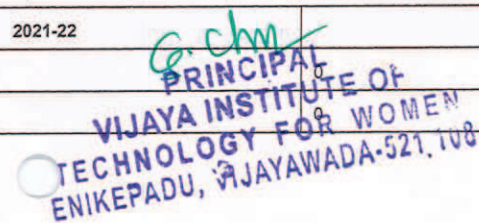 2021-22
PRINCIPAL
VIJAYA INSTITUTE OF
TECHNOLOGY FOR WOMEN
ENIKEPADU, VIJAYAWADA-521.108